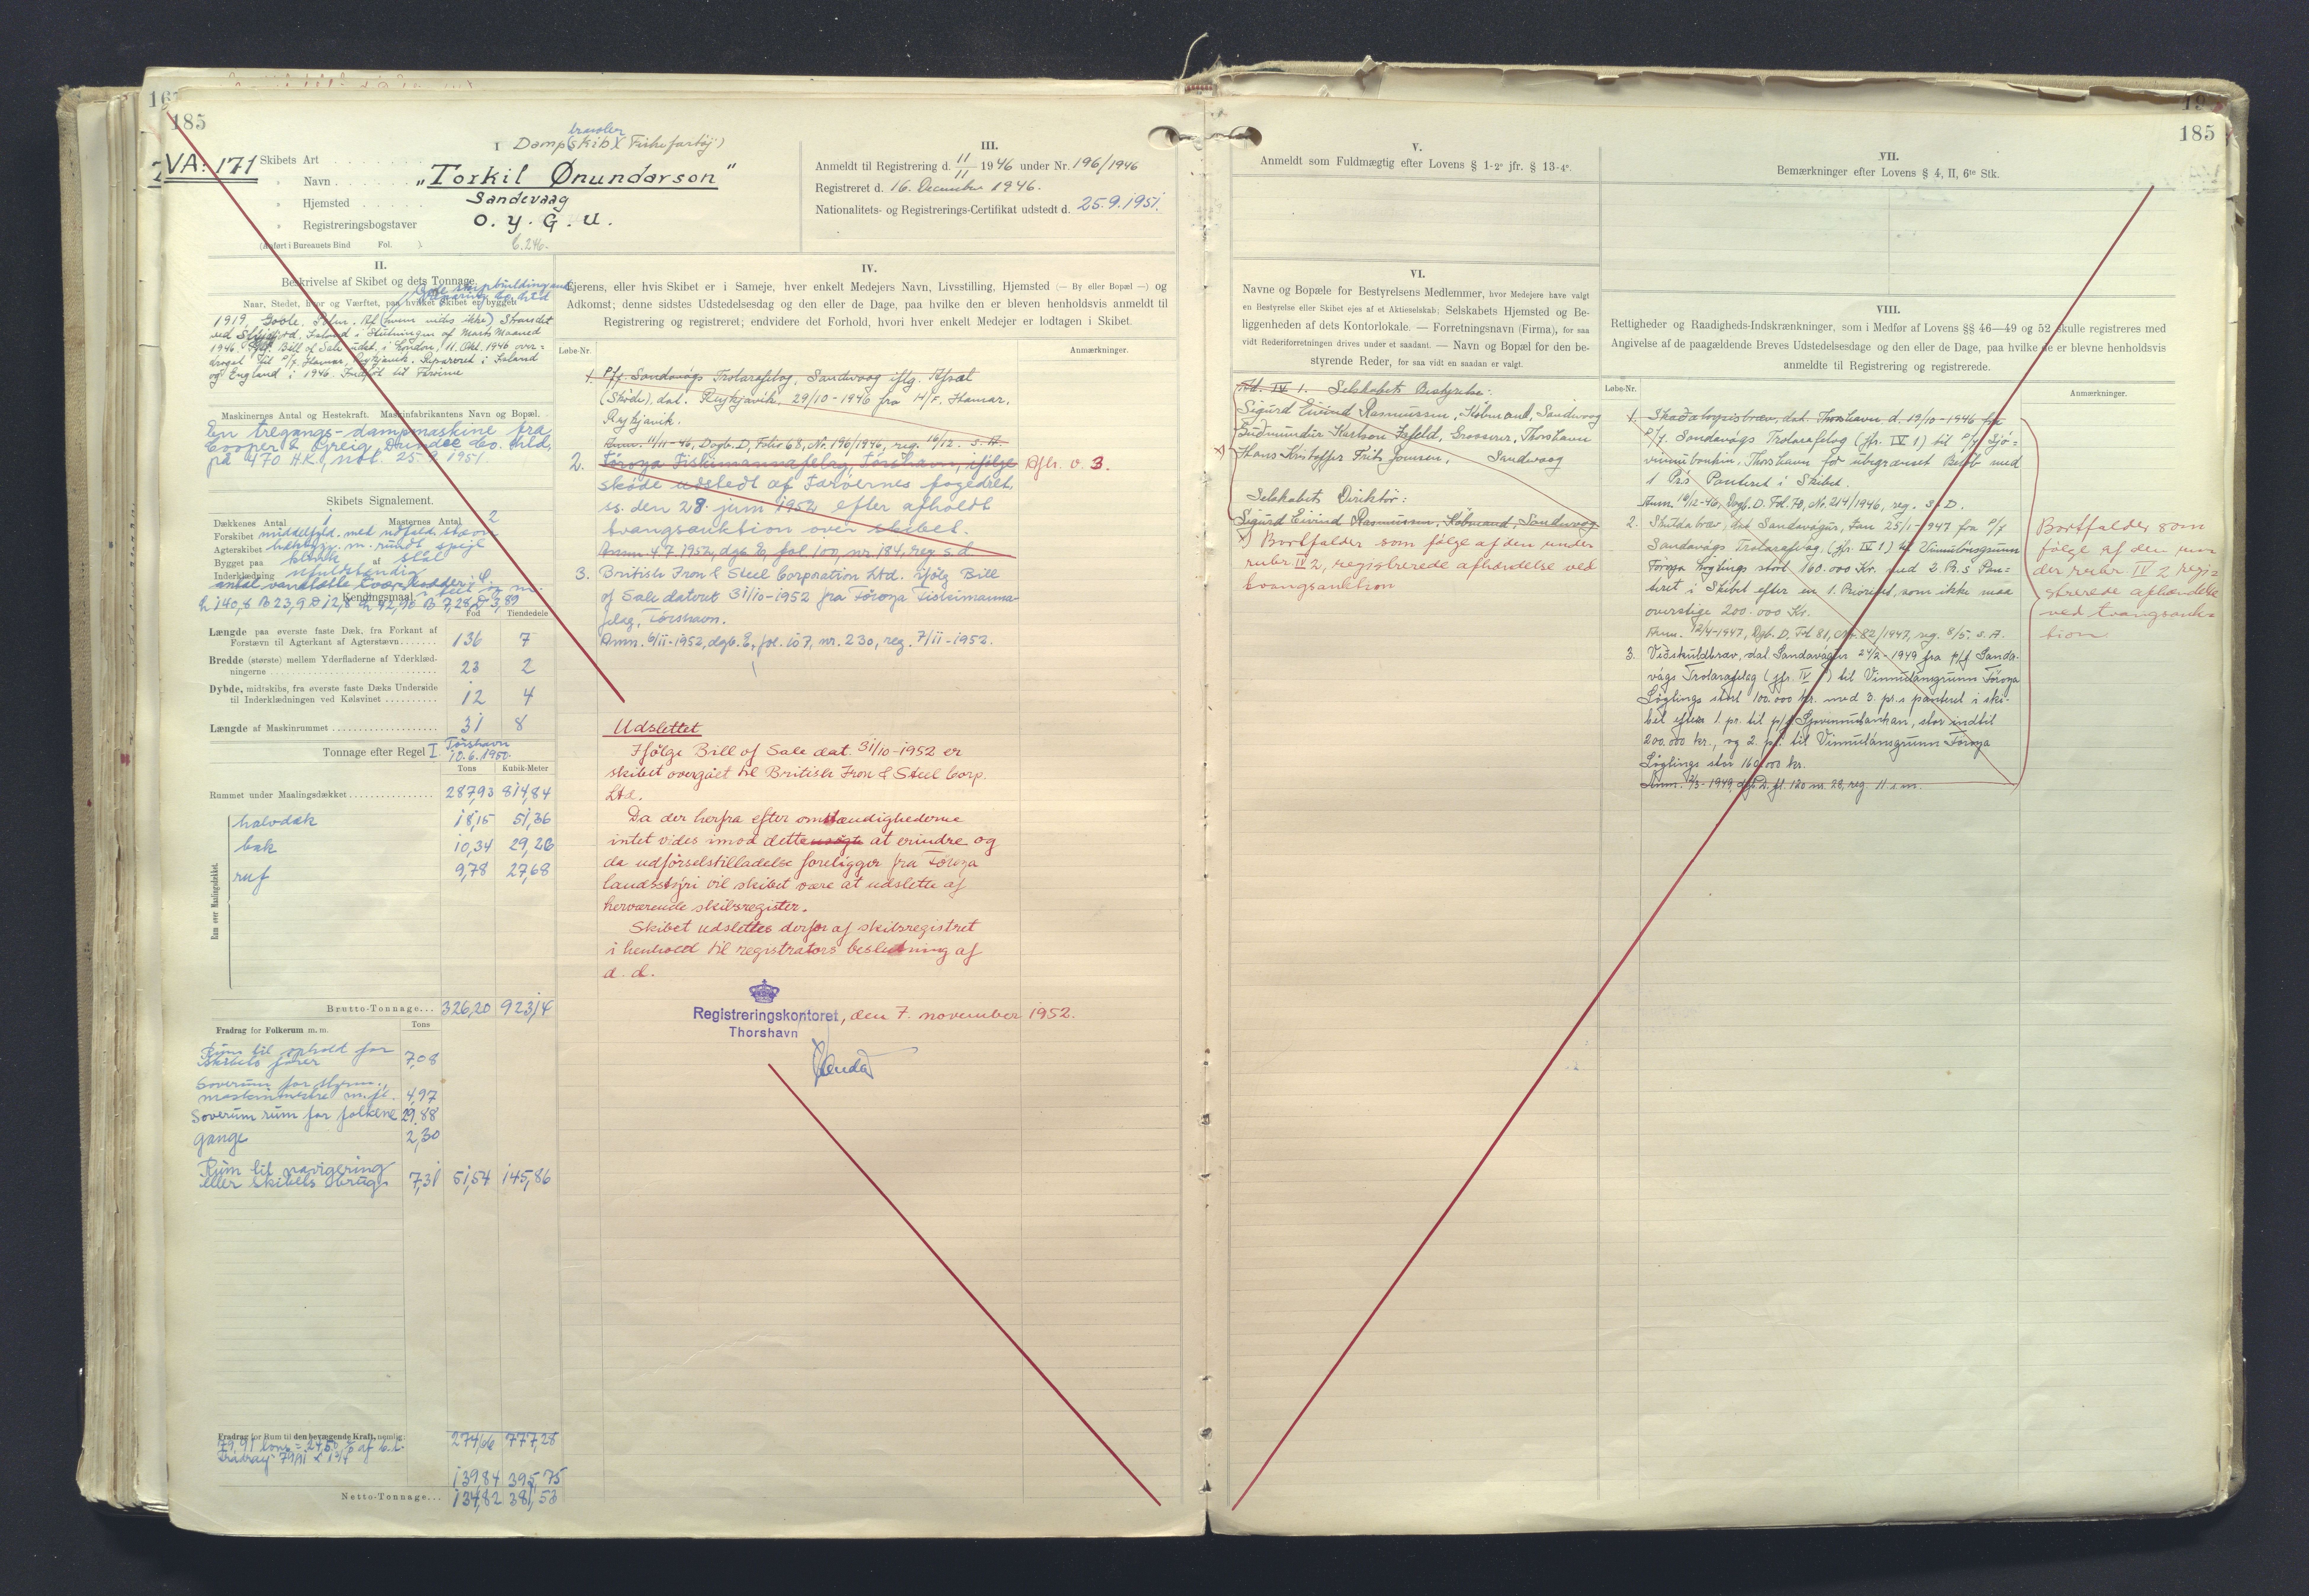 185
VA: 171
I
trawler
Dampskib (Fiskefartøj)
Skibets Art
" Navn
"Torkil Ønundarson"
" Hjemsted
Sandevaag
" Registreringsbogstaver
O. Y. G. U.
(Anført i Bureauets Bind Fol. ).
III.
Anmeldt til Registrering d. 11/11 1946 under Nr. 196/1946
Registreret d. 16. December 1946.
Nationalitets- og Registrerings-Certifikat udstedt d. 25.9.1951.
II.
Beskrivelse af Skibet og dets Tonnage.
Naar, Stedet, hvor og Værftet, paa hvilket Skibet er bygget
1919, Goole, (hvem vides ikke) Strandet
ved Island i Slutningen af Marts Maaned
1946. Bill of Sale udst. i London, 11. Okt. 1946 over=
draget til P/f. Hamar, Reykjavik. Repareret i Island
og England i 1946. Indført til Færøerne
Maskinernes Antal og Hestekraft. Maskinfabrikantens Navn og Bopæl.
En tregangs-dampmaskine fra
Cooper & Greig, Dundee Co. Ltd.
på 470 H.K., not. 25.9.1951.
Skibets Signalement.
Dækkenes Antal 1 Masternes Antal 2
Forskibet middelfyld. med udfald. stævn
Agterskibet m. rundt spejl
Bygget paa kravel af stål
Inderklædning ufuldstændig
antal vandtætte tværskodder:
Kendingsmaal i feet og m.
L 140,8 B 23,9 D 12,8 L 42,96 B 7,28 D 3,89
Fod Tiendedele
Længde paa øverste faste Dæk, fra Forkant af
Forstævn til Agterkant af Agterstævn 136 7
Bredde (største) mellem Yderfladerne af Yderklæd-
ningerne 23 2
Dybde, midtskibs, fra øverste faste Dæks Underside
til Inderklædningen ved Kølsvinet 12 4
Længde af Maskinrummet 31 8
Tonnage efter Regel I Tórshavn
10.6.1950.
Tons Kubik-Meter
Rummet under Maalingsdækket 287,93 814,84
Rum over Maalingsdækket.
halvdæk 18,15 51,36
bak 10,34 29,26
ruf 9,78 27,68
Brutto-Tonnage... 326,20 923,14
Fradrag for Folkerum m. m. Tons
Rum til ophold for
skibets fører 7,08
Soverum for styrm.,
maskinmestre m.fl. 4,97
Soverum rum for folkene 29,88
gange 2,30
Rum til navigering
eller skibets brug 7,31 51,54 145,86
Fradrag for Rum til den bevægende Kraft, nemlig:
79,91 tons = 24,50 % af b.t.
274,66 777,28
Fradrag 79,91 x 1 3/4
139,84 395,75
Netto-Tonnage... 134,82 381,53
IV.
Ejerens, eller hvis Skibet er i Sameje, hver enkelt Medejers Navn, Livsstilling, Hjemsted (— By eller Bopæl —) og
Adkomst; denne sidstes Udstedelsesdag og den eller de Dage, paa hvilke den er bleven henholdsvis anmeldt til
Registrering og registreret; endvidere det Forhold, hvori hver enkelt Medejer er lodtagen i Skibet.
Løbe-Nr. Anmærkninger.
1. P/f. Sandavágs Trolarafelag, Sandevaag iflg. Afsal
(Skøde), dat. Reykjavik, 29/10-1946 fra H/F. Hamar,
Reykjavik.
Anm. 11/11-46, Dagb. D, Folio 68, Nr. 196/1946, reg. 16/12. s. A.
2. Föroya Fiskimannafelag, Tórshavn, ifølge Afh. v. 3.
skøde udstedt af Færøernes fogedret,
ss. den 28. juni 1952 efter afholdt
tvangsauktion over skibet.
Anm. 4.7.1952, dgb. E, fol. 100, nr. 184, reg. s.d.
3. British Iron & Steel Corporation Ltd. ifølg. Bill
of Sale dateret 31/10-1952 fra Föroya Fiskimanna-
felag, Tórshavn.
Anm. 6/11-1952, dgb. E, fol. 107, nr. 230, reg. 7/11-1952.
Udslettet
Ifølge Bill of Sale dat. 31/10-1952 er
skibet overgået til British Iron & Steel Corp.
Ltd.
Da der herfra efter omstændighederne
intet vides imod dette at erindre og
da udførselstilladelse foreligger fra Föroya
landsstýri vil skibet være at udslette af
herværende skibsregister.
Skibet udslettes derfor af skibsregistret
i henhold til registrators beslutning af
d. d.
Registreringskontoret, den 7. november 1952.
Thorshavn
185
V.
Anmeldt som Fuldmægtig efter Lovens § 1-2° jfr. § 13-4°.
VI.
Navne og Bopæle for Bestyrelsens Medlemmer, hvor Medejere have valgt
en Bestyrelse eller Skibet ejes af et Aktieselskab; Selskabets Hjemsted og Be-
liggenheden af dets Kontorlokale. — Forretningsnavn (Firma), for saa
vidt Rederiforretningen drives under et saadant. — Navn og Bopæl for den be-
styrende Reder, for saa vidt en saadan er valgt.
Ad. IV 1. Selskabets Bestyrelse:
Sigurd Eivind Rasmussen, Købmand, Sandevaag
Gudmundur Karlson Isfeld, Grosserer, Thorshavn
Hans Kristoffer Frits Joensen, Sandevaag
Selskabets Direktør:
Sigurd Eivind Rasmussen, Købmand, Sandevaag
x) Bortfalder som følge af den under
rubr. IV 2, registrerede afhændelse ved
tvangsauktion
VII.
Bemærkninger efter Lovens § 4, II, 6te Stk.
VIII.
Rettigheder og Raadigheds-Indskrænkninger, som i Medfør af Lovens §§ 46—49 og 52 skulle registreres med
Angivelse af de paagældende Breves Udstedelsesdage og den eller de Dage, paa hvilke de er blevne henholdsvis
anmeldte til Registrering og registrerede.
Løbe-Nr. Anmærkninger.
1. Skaðaloysisbræv, dat. Thorshavn d. 12/10-1946 fra
P/f. Sandavágs Trolarafelag (jfr. IV 1) til P/f. Sjó=
vinnubankin, Thorshavn for ubegrænset Beløb med
1 Pr.s Panteret i Skibet.
Anm. 10/12-46, Dagb. D. Fol. 70, Nr. 214/1946, reg. s. D.
2. Skuldabræv, dat. Sandavágur, Jan. 25/1-1947 fra P/f
Sandavágs Trolarafelag (jfr. IV 1) til Vinnulánsgrunn
Föroya Løgtings stort 160.000 Kr. med 2 Pr.s Pan=
teret i Skibet efter en 1. Prioritet, som ikke maa
overstige 200.000 Kr.
Anm. 12/4-1947, Dgb. D. Fol 81, Nr. 82/1947, reg. 8/5. s. A.
3. Viðskuldbræv, dat. Sandavágur 24/2-1949 fra p/f Sanda-
vágs Trolarafelag (jfr. IV 1) til Vinnulánsgrunn Föroya
Løgtings stort 100.000 kr. med 3. pr.s panteret i ski-
bet efter 1. pr. til p/f Sjóvinnubankan, stor indtil
200.000 kr., og 2. pr. til Vinnulánsgrunn Föroya
Løgtings stor 160.000 kr.
Anm. 2/3-1949, dgb D. fl. 120 nr. 28, reg. 11 s.m.
Bortfalder som
følge af den un-
der rubr. IV 2 regi=
strerede afhændelse
ved tvangsauk=
tion